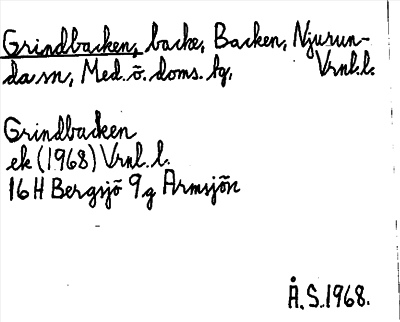 Grindbacken, backe, Backen, Njurun-
da sn, Med. ö. doms. tg, Vrnl. l.
Grindbacken
ek (1968) Vrnl. l.
16 H Bergsjö 9 g Armsjön
Å. S. 1968.